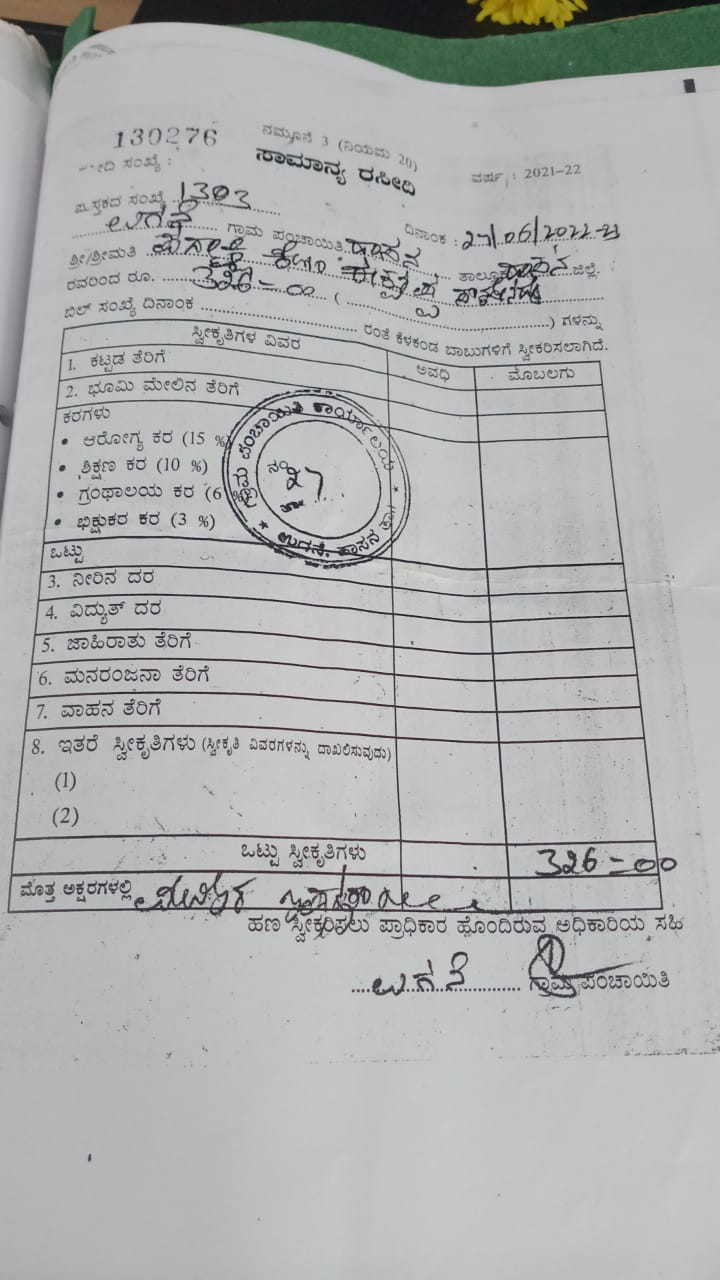 130276
ನಮೂನೆ 3 (ನಿಯಮ 20)
ಸಾಮಾನ್ಯ ರಸೀದಿ
ಸಂಖ್ಯೆ :
ವರ್ಷ : 2021-22
ಪುಸ್ತಕದ ಸಂಖ್ಯೆ 1303
ಗ್ರಾಮ ಪಂಚಾಯಿತಿ ದಿನಾಂಕ : 27/06/2022-23
ಶ್ರೀ/ಶ್ರೀಮತಿ ಹಾಸನ ತಾಲ್ಲೂಕು ಹಾಸನ ಜಿಲ್ಲೆ.
ರವರಿಂದ ರೂ. 326=00 (
ಬಿಲ್ ಸಂಖ್ಯೆ ದಿನಾಂಕ ) ಗಳನ್ನು
ರಂತೆ ಕೆಳಕಂಡ ಬಾಬುಗಳಿಗೆ ಸ್ವೀಕರಿಸಲಾಗಿದೆ.
ಸ್ವೀಕೃತಿಗಳ ವಿವರ ಅವಧಿ ಮೊಬಲಗು
1. ಕಟ್ಟಡ ತೆರಿಗೆ
2. ಭೂಮಿ ಮೇಲಿನ ತೆರಿಗೆ
ಕರಗಳು
• ಆರೋಗ್ಯ ಕರ (15 %
• ಶಿಕ್ಷಣ ಕರ (10 %)
• ಗ್ರಂಥಾಲಯ ಕರ (6
• ಭಿಕ್ಷುಕರ ಕರ (3 %)
ಗ್ರಾಮ ಪಂಚಾಯಿತಿ ಕಾರ್ಯಾಲಯ
ನಂ.
27
ಉಗನೆ, ಹಾಸನ ತಾ||
ಒಟ್ಟು
3. ನೀರಿನ ದರ
4. ವಿದ್ಯುತ್ ದರ
5. ಜಾಹಿರಾತು ತೆರಿಗೆ
6. ಮನರಂಜನಾ ತೆರಿಗೆ
7. ವಾಹನ ತೆರಿಗೆ
8. ಇತರೆ ಸ್ವೀಕೃತಿಗಳು (ಸ್ವೀಕೃತಿ ವಿವರಗಳನ್ನು ದಾಖಲಿಸುವುದು)
(1)
(2)
ಒಟ್ಟು ಸ್ವೀಕೃತಿಗಳು 326=00
ಮೊತ್ತ ಅಕ್ಷರಗಳಲ್ಲಿ
ಹಣ ಸ್ವೀಕರಿಸಲು ಪ್ರಾಧಿಕಾರ ಹೊಂದಿರುವ ಅಧಿಕಾರಿಯ ಸಹಿ
ಉಗನೆ ಗ್ರಾಮ ಪಂಚಾಯಿತಿ